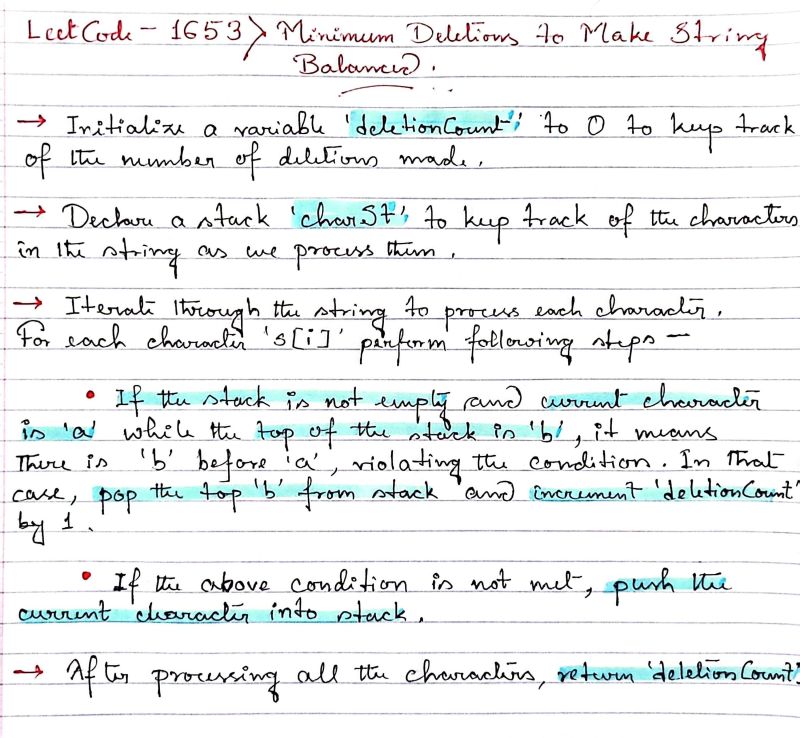 LeetCode - 1653 > Minimum Deletions to Make String
Balanced.
→ Initialize a variable 'deletionCount' to 0 to keep track
of the number of deletions made.
→ Declare a stack 'charSt' to keep track of the characters
in the string as we process them.
→ Iterate through the string to process each character.
For each character 's[i]' perform following steps -
• If the stack is not empty and current character
is 'a' while the top of the stack is 'b', it means
there is 'b' before 'a', violating the condition. In that
case, pop the top 'b' from stack and increment 'deletionCount'
by 1.
• If the above condition is not met, push the
current character into stack.
→ After processing all the characters, return 'deletionCount'.